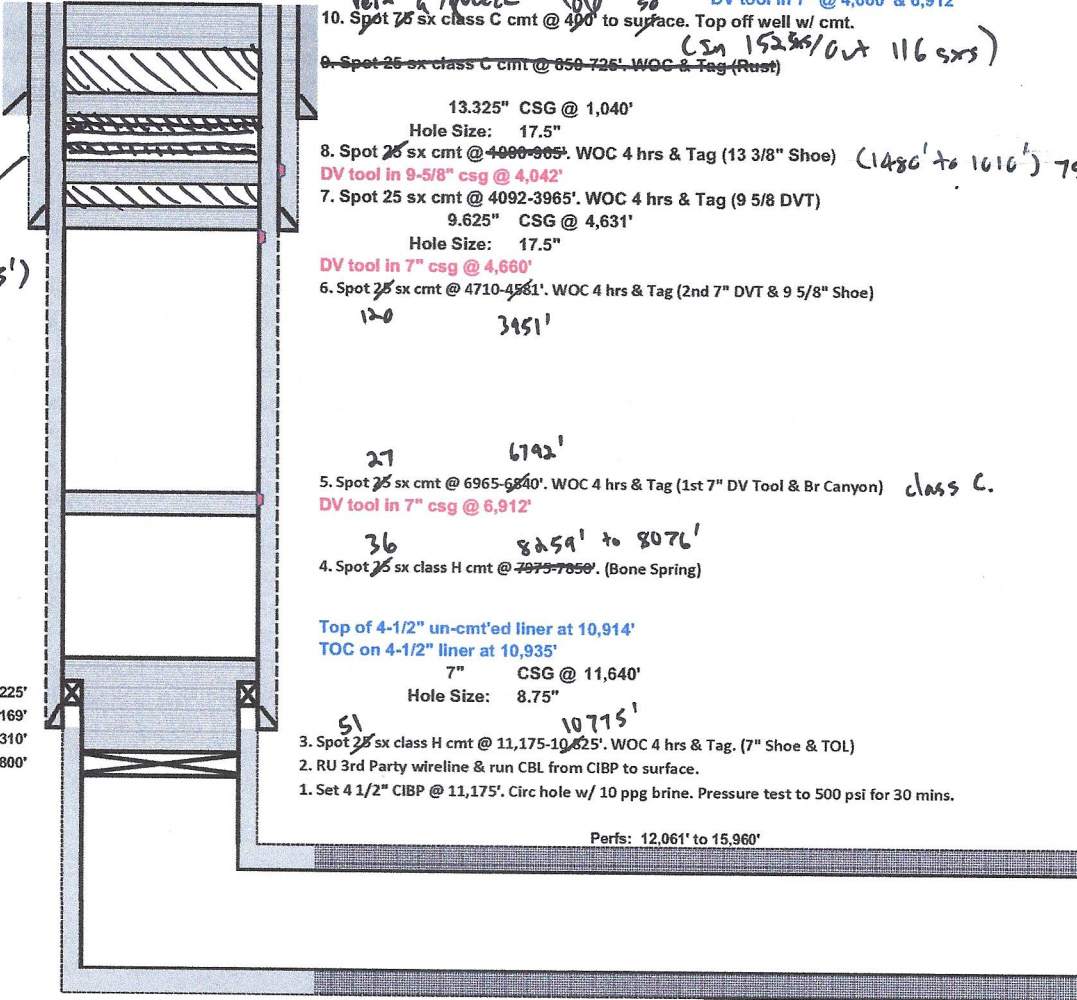 DV tool in 7" @ 4,660' & 6,912'
10. Spot 75 sx class C cmt @ 400' to surface. Top off well w/ cmt.
(In 152 sxs/Out 116 sxs)
9. Spot 25 sx class C cmt @ 850-725'. WOC & Tag (Rust)
13.325" CSG @ 1,040'
Hole Size: 17.5"
8. Spot 25 sx cmt @ 1090-905'. WOC 4 hrs & Tag (13 3/8" Shoe) (1480' to 1010')
DV tool in 9-5/8" csg @ 4,042'
7. Spot 25 sx cmt @ 4092-3965'. WOC 4 hrs & Tag (9 5/8 DVT)
9.625" CSG @ 4,631'
Hole Size: 17.5"
DV tool in 7" csg @ 4,660'
6. Spot 25 sx cmt @ 4710-4581'. WOC 4 hrs & Tag (2nd 7" DVT & 9 5/8" Shoe)
120 3951'
27 6792'
5. Spot 25 sx cmt @ 6965-6840'. WOC 4 hrs & Tag (1st 7" DV Tool & Br Canyon) class C.
DV tool in 7" csg @ 6,912'
36 8259' to 8076'
4. Spot 25 sx class H cmt @ 7975-7850'. (Bone Spring)
Top of 4-1/2" un-cmt'ed liner at 10,914'
TOC on 4-1/2" liner at 10,935'
7" CSG @ 11,640'
Hole Size: 8.75"
225'
169'
310'
800'
51 10775'
3. Spot 25 sx class H cmt @ 11,175-10,825'. WOC 4 hrs & Tag. (7" Shoe & TOL)
2. RU 3rd Party wireline & run CBL from CIBP to surface.
1. Set 4 1/2" CIBP @ 11,175'. Circ hole w/ 10 ppg brine. Pressure test to 500 psi for 30 mins.
Perfs: 12,061' to 15,960'